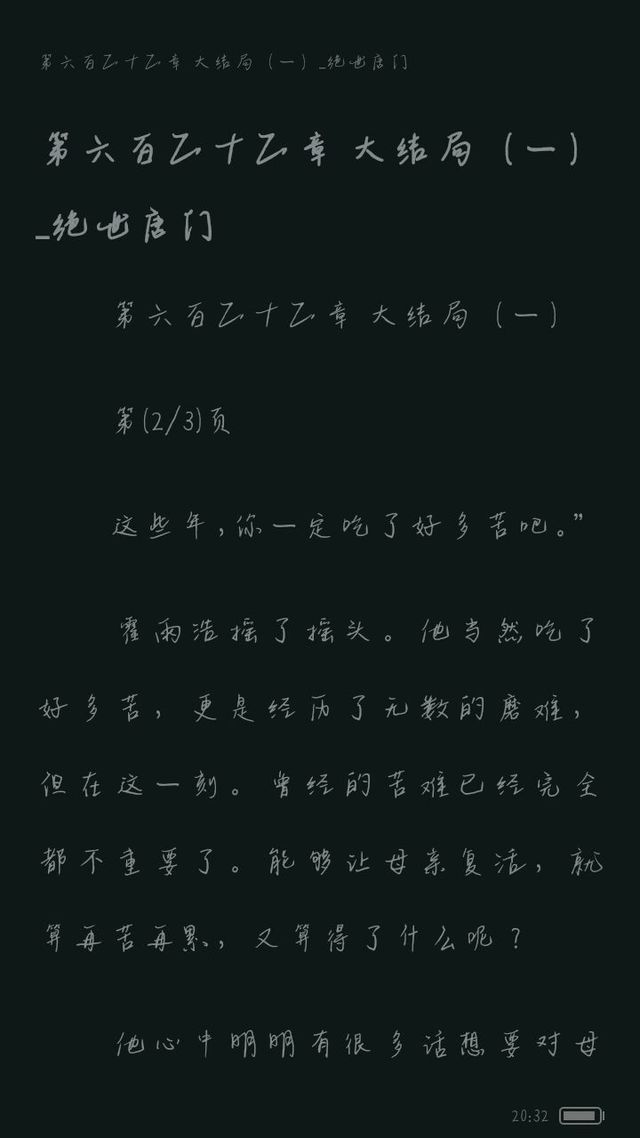 第六百二十二章 大结局（一）_绝世唐门
第六百二十二章 大结局（一）
_绝世唐门
第六百二十二章 大结局（一）
第(2/3)页
这些年，你一定吃了好多苦吧。”
霍雨浩摇了摇头。他当然吃了
好多苦，更是经历了无数的磨难，
但在这一刻。曾经的苦难已经完全
都不重要了。能够让母亲复活，就
算再苦再累，又算得了什么呢？
他心中明明有很多话想要对母
20:32